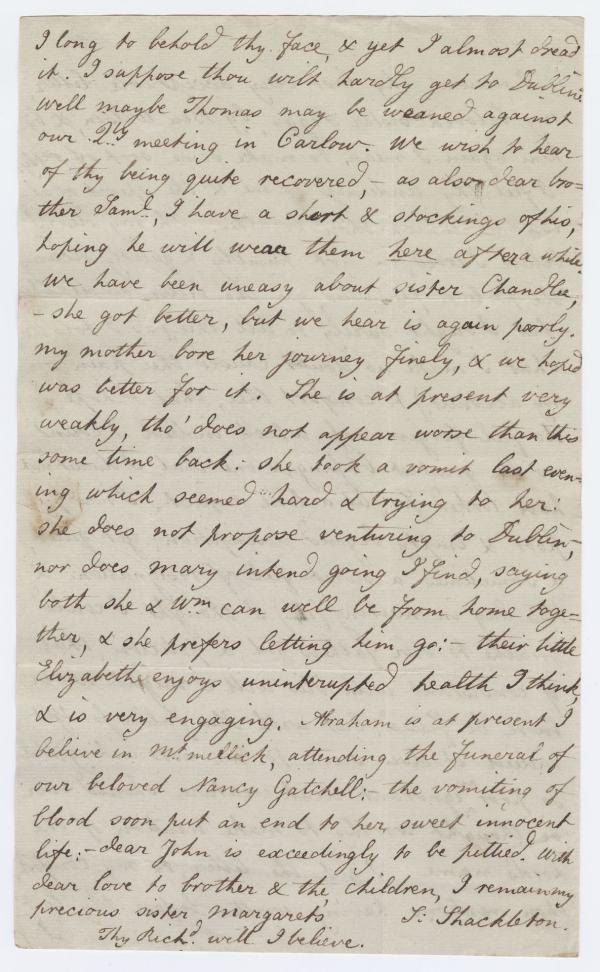 I long to behold thy face, & yet I almost dread
it. I suppose thou wilt hardly get to Dublin:
well maybe Thomas may be weaned against
our Qly meeting in Carlow. We wish to hear
of thy being quite recovered, – as also dear bro=
ther Saml., I have a shirt & stockings of his,
hoping he will wear them here after a while.
we have been uneasy about sister Chandlee,
– she got better, but we hear is again poorly.
my mother bore her journey finely, & we hoped
was better for it. She is at present very
weakly, tho' does not appear worse than this
some time back: she took a vomit last even=
ing which seemed hard & trying to her:
she does not propose venturing to Dublin,
nor does mary intend going I find, saying
both she & Wm can well be from home toge=
ther, & she prefers letting him go: – their little
Elizabeth enjoys uninterupted health I think,
& is very engaging. Abraham is at present I
believe in Mt. mellick, attending the funeral of
our beloved Nancy Gatchell: – the vomiting of
blood soon put an end to her sweet innocent
life: – dear John is exceedingly to be pittied. With
dear love to brother & the children, I remain my
precious sister margaret's S: Shackleton.
Thy Richd. will I believe.